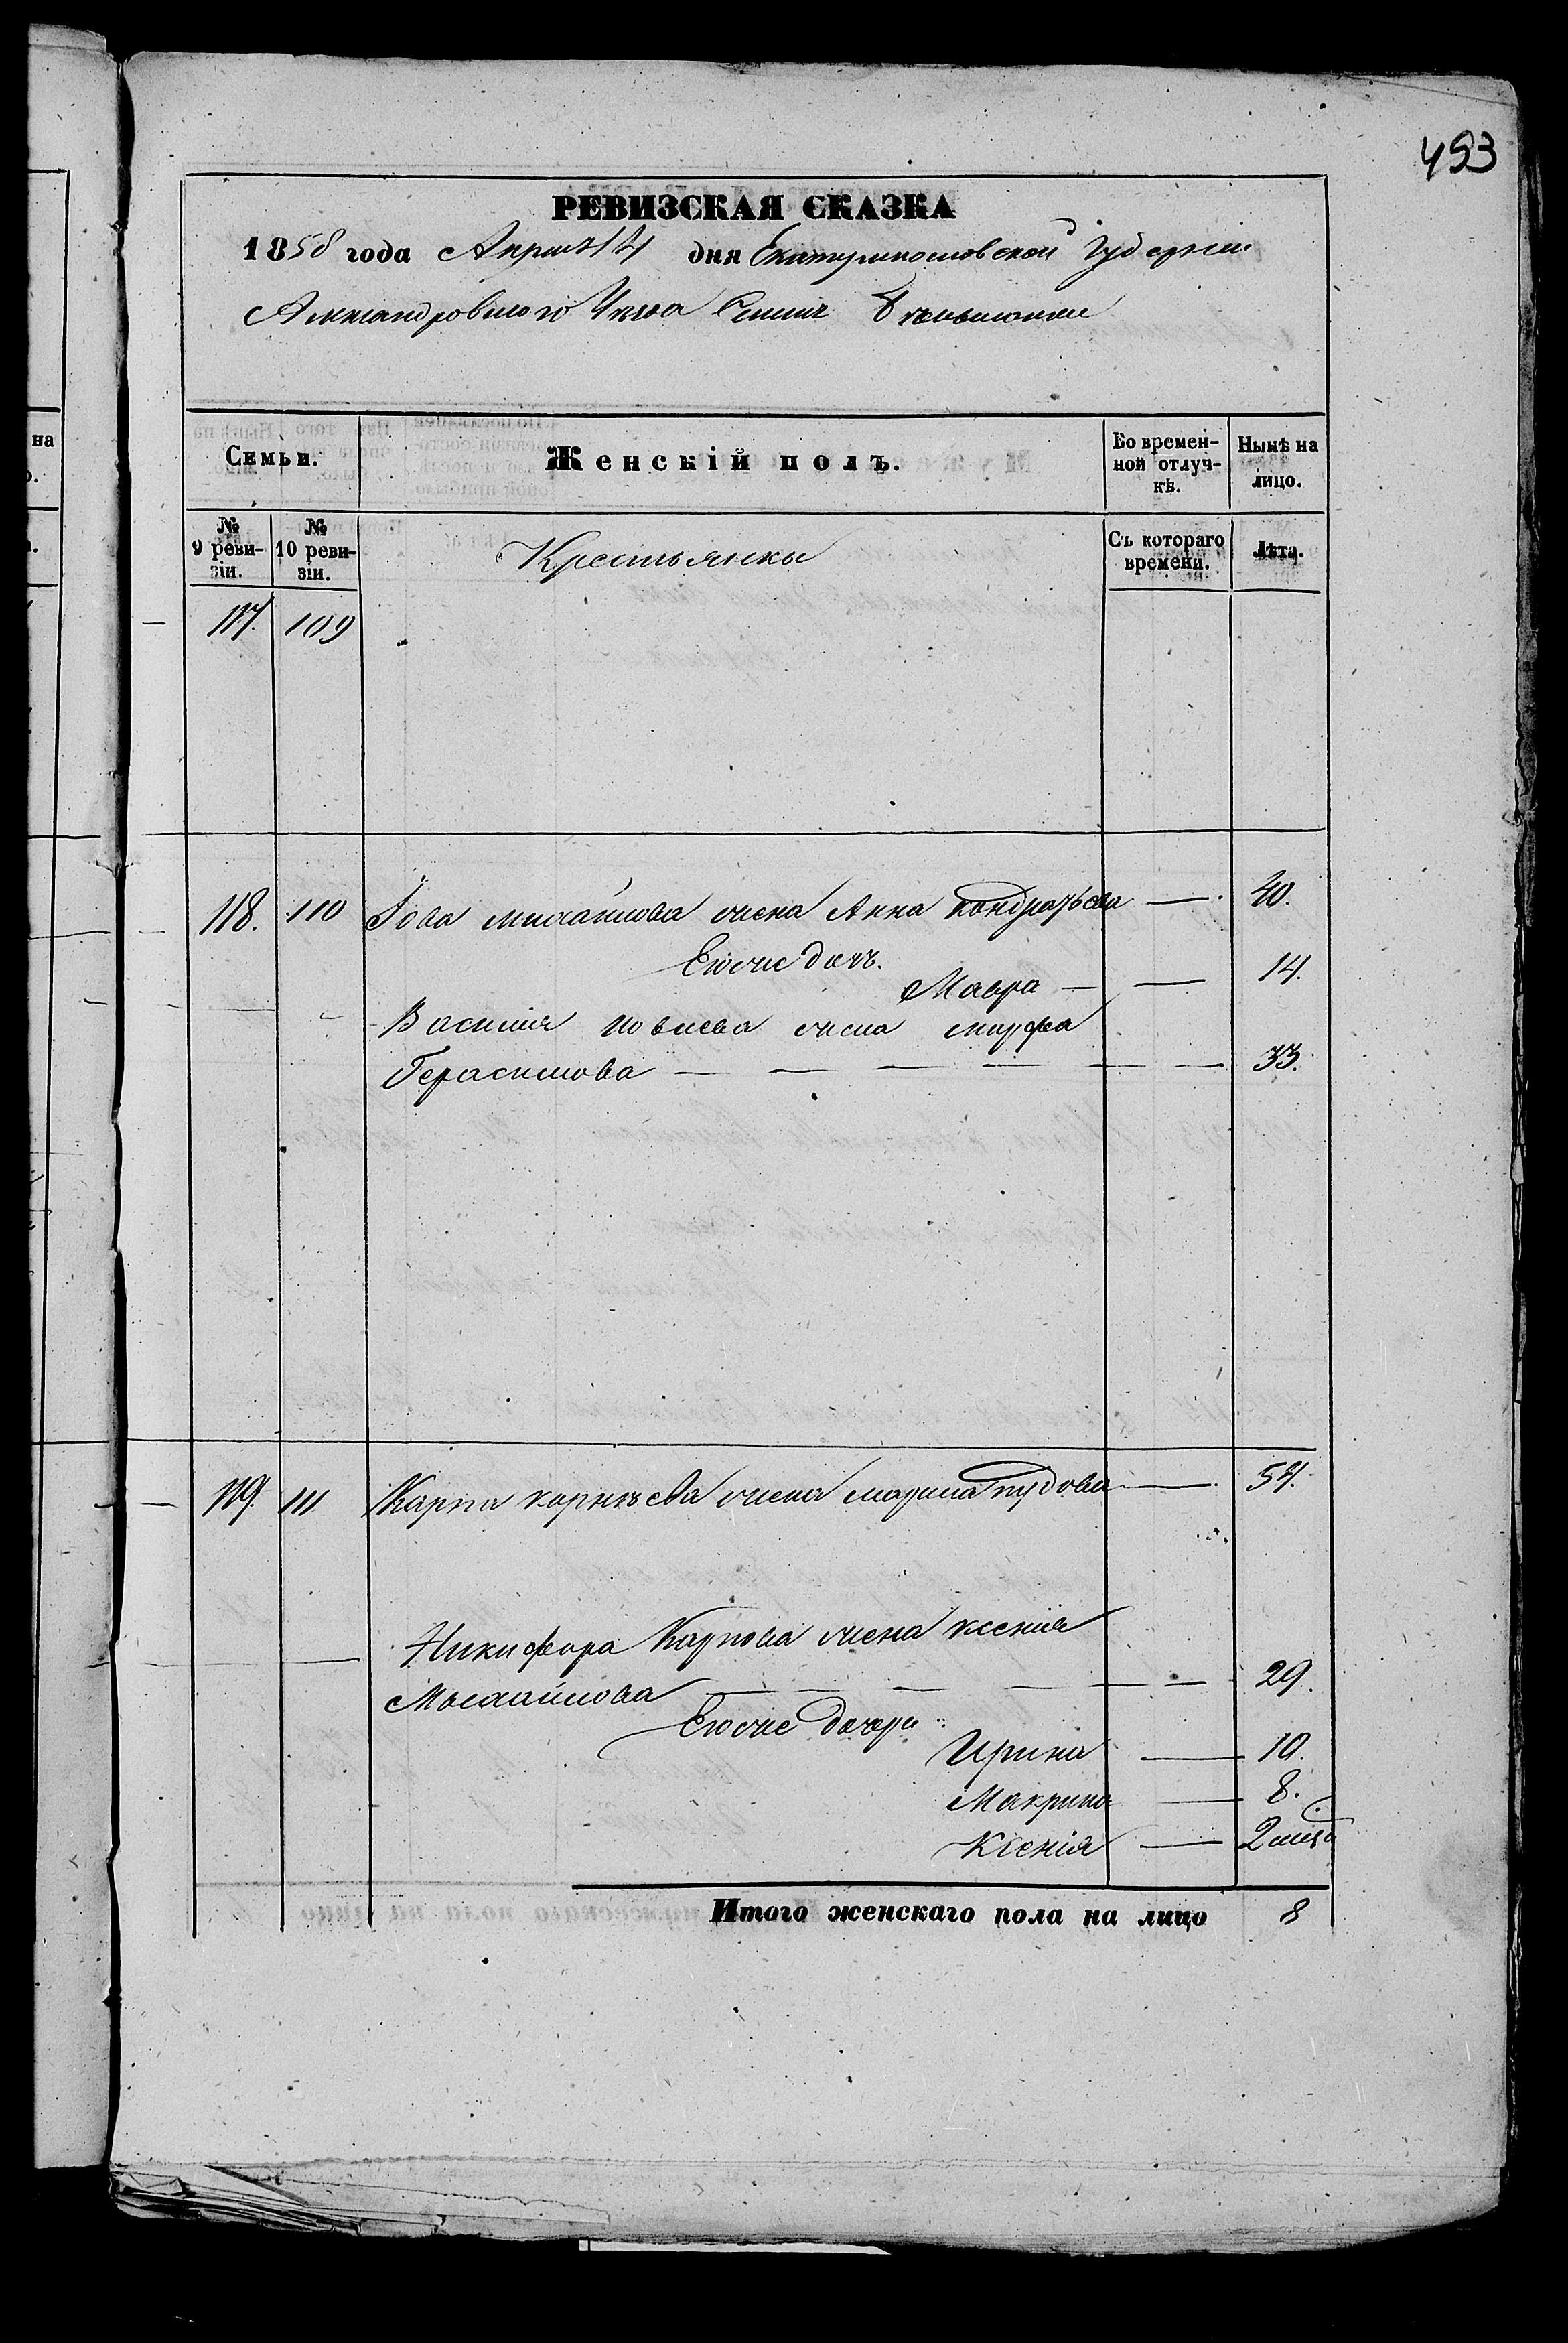 493
на
о.
РЕВИЗСКАЯ СКАЗКА
1858 года Апреля 14 дня Екатеринославской Губернии
Александровского Уезда Селения
Семьи. Женскій полъ. Во времен-ной отлуч-кѣ. Нынѣ на лицо.
№ 9 реви-зіи. № 10 реви-зіи. Крестьянки Съ котораго времени. Лѣта.
117. 109
118. 110 Іова Михайлова жена Анна Кондратьева 40.
Еюже дочь
Мавра 14.
Василия жена Марфа
Герасимова 33.
119. 111 Карпа Корнѣева жена Марина Тудова 54.
Никифора Карпова жена Ксенія
Михайлова 29.
Еюже дочери
Ирина 10.
Макрина 8.
Ксенія 2
Итого женскаго пола на лицо 8